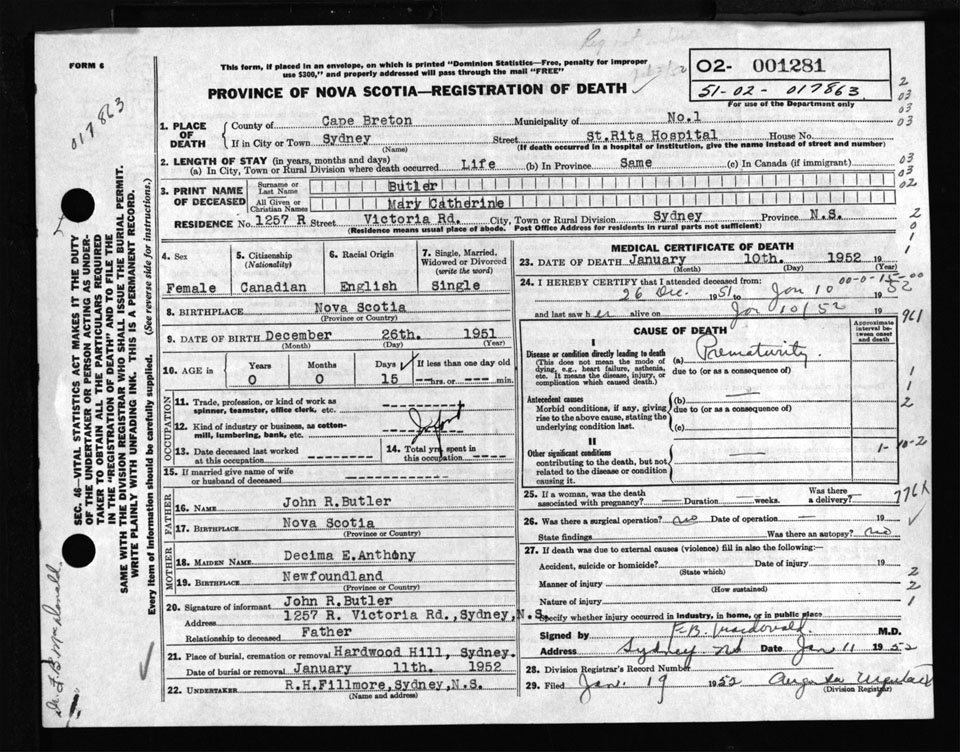 FORM 6
This form, if placed in an envelope, on which is printed "Dominion Statistics—Free, penalty for improper
use $300," and properly addressed will pass through the mail "FREE"
PROVINCE OF NOVA SCOTIA—REGISTRATION OF DEATH
O2- 001281
51-02- 017863
For use of the Department only
017863
1. PLACE OF DEATH
County of Cape Breton Municipality of No.1
If in City or Town Sydney Street St.Rita Hospital House No.
(Name) (If death occurred in a hospital or institution, give the name instead of street and number)
2. LENGTH OF STAY (in years, months and days)
(a) In City, Town or Rural Division where death occurred Life (b) In Province Same (c) In Canada (if immigrant)
3. PRINT NAME OF DECEASED
Surname or Last Name Butler
All Given or Christian Names Mary Catherine
RESIDENCE No. 1257 R Street Victoria Rd. City, Town or Rural Division Sydney Province N.S.
(Residence means usual place of abode. Post Office Address for residents in rural parts not sufficient)
4. Sex
Female
5. Citizenship
(Nationality)
Canadian
6. Racial Origin
English
7. Single, Married,
Widowed or Divorced
(write the word)
Single
8. BIRTHPLACE Nova Scotia
(Province or Country)
9. DATE OF BIRTH December 26th. 1951
(Month) (Day) (Year)
10. AGE in Years Months Days If less than one day old
0 0 15 --hrs. or --min.
OCCUPATION
11. Trade, profession, or kind of work as
spinner, teamster, office clerk, etc.
12. Kind of industry or business, as cotton-
mill, lumbering, bank, etc.
13. Date deceased last worked
at this occupation
14. Total yrs. spent in
this occupation
15. If married give name of wife
or husband of deceased
FATHER
16. Name John R.Butler
17. Birthplace Nova Scotia
(Province or Country)
MOTHER
18. Maiden Name Decima E.Anthony
19. Birthplace Newfoundland
(Province or Country)
20. Signature of informant John R.Butler
Address 1257 R. Victoria Rd.,Sydney,N.S.
Relationship to deceased Father
21. Place of burial, cremation or removal Hardwood Hill, Sydney.
Date of burial or removal January 11th. 1952
22. Undertaker R.H.Fillmore,Sydney,N.S.
(Name and address)
MEDICAL CERTIFICATE OF DEATH
23. DATE OF DEATH January 10th. 1952 19
(Month) (Day) (Year)
24. I HEREBY CERTIFY that I attended deceased from:
26 Dec. 1951 to Jan 10 1952
and last saw her alive on Jan 10/52 19
CAUSE OF DEATH
Approximate
interval be-
tween onset
and death
I
Disease or condition directly leading to death
(This does not mean the mode of
dying, e.g., heart failure, asthenia,
etc. It means the disease, injury, or
complication which caused death.)
(a) Prematurity.
due to (or as a consequence of)
Antecedent causes
Morbid conditions, if any, giving
rise to the above cause, stating the
underlying condition last.
(b) —
due to (or as a consequence of)
(c)
II
Other significant conditions
contributing to the death, but not
related to the disease or condition
causing it.
25. If a woman, was the death
associated with pregnancy? Duration weeks. Was there a delivery?
26. Was there a surgical operation? no Date of operation — 19
State findings Was there an autopsy? no
27. If death was due to external causes (violence) fill in also the following:—
Accident, suicide or homicide? Date of injury 19
(State which)
Manner of injury
(How sustained)
Nature of injury
Specify whether injury occurred in industry, in home, or in public place
Signed by F.B. Macdonald. M.D.
Address Sydney. NS Date Jan 11 1952
28. Division Registrar's Record Number
29. Filed Jan. 19 1952
(Division Registrar)
SEC. 46—VITAL STATISTICS ACT MAKES IT THE DUTY
OF THE UNDERTAKER OR PERSON ACTING AS UNDER-
TAKER TO OBTAIN ALL THE PARTICULARS REQUIRED
IN THE "REGISTRATION OF DEATH" AND TO FILE THE
SAME WITH THE DIVISION REGISTRAR WHO SHALL ISSUE THE BURIAL PERMIT.
WRITE PLAINLY WITH UNFADING INK. THIS IS A PERMANENT RECORD.
Every item of Information should be carefully supplied. (See reverse side for instructions.)
Dr. F. B. McDonald.